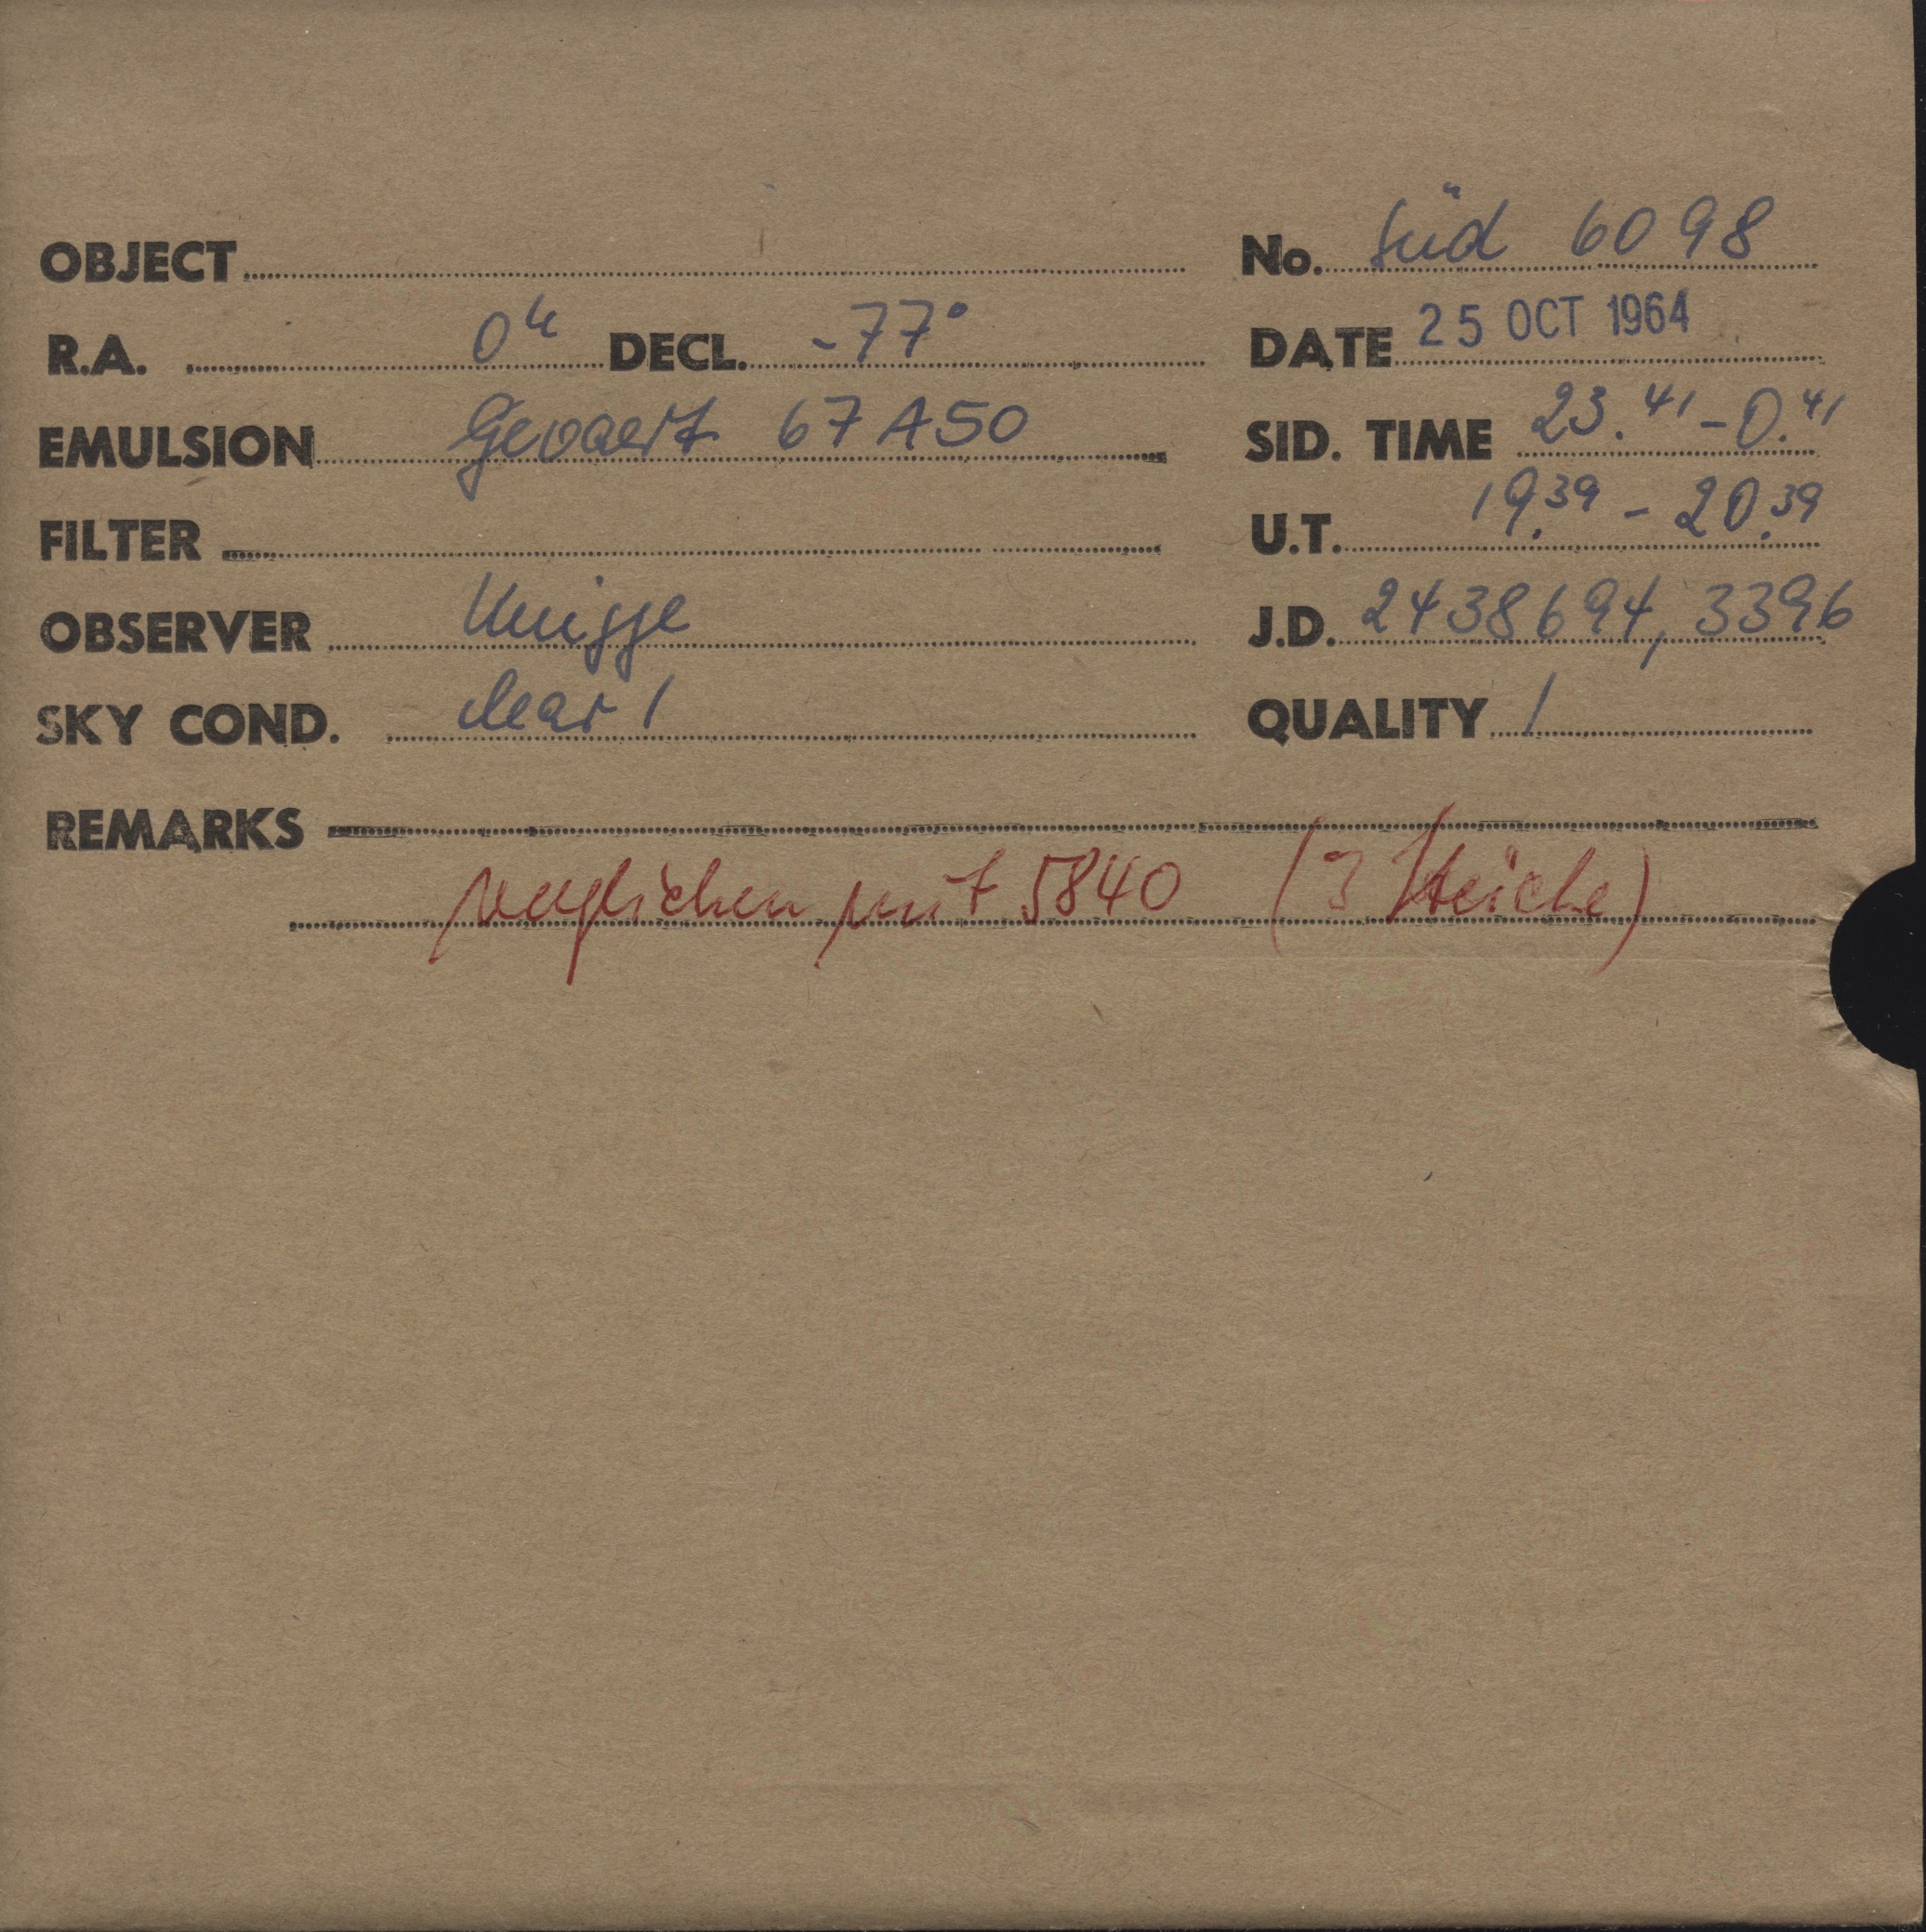 OBJECT No. Süd 6098
R.A. 0h DECL. -77° DATE 25 OCT 1964
EMULSION Gevaert 67A50 SID. TIME 23.41 - 0.41
FILTER U.T. 19.39 - 20.39
OBSERVER Knigge J.D. 2438694,3396
SKY COND. clear 1 QUALITY 1
REMARKS
verglichen mit 5840 (3 Striche)